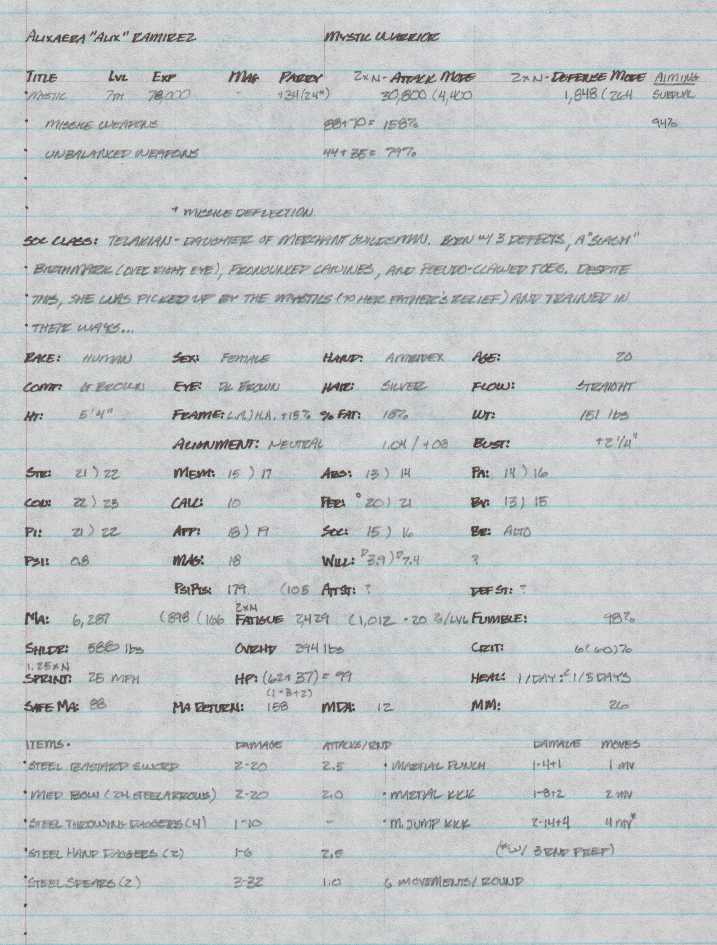 ALIXAERA "ALIX" RAMIREZ MYSTIC WARRIOR
TITLE LVL EXP MAG PARRY 2xN-ATTACK MODE 2xN-DEFENSE MODE AIMING
MYSTIC 7TH 78,000 - +34(24*) 30,800 (4,400 1,848 (264 SUBDUAL
MISSILE WEAPONS 88+70= 158% 94%
UNBALANCED WEAPONS 44+35= 79%
* MISSILE DEFLECTION
SOC CLASS: TELAKIAN - DAUGHTER OF MERCHANT GUILDSMAN. BORN W/ 3 DEFECTS, A "SLASH"
BIRTHMARK (OVER RIGHT EYE), PRONOUNCED CANINES, AND PSEUDO-CLAWED TOES. DESPITE
THIS, SHE WAS PICKED UP BY THE MYSTICS (TO HER FATHER'S RELIEF) AND TRAINED IN
THEIR WAYS...
RACE: HUMAN SEX: FEMALE HAND: AMBIDEX AGE: 20
COMP: LT BROWN EYE: DK BROWN HAIR: SILVER FLOW: STRAIGHT
HT: 5'4" FRAME: +15% % FAT: 18% WT: 151 lbs
ALIGNMENT: NEUTRAL 1.04 / +08 BUST: +2 1/4"
STR: 21 ) 22 MEM: 15 ) 17 ABS: 13 ) 14 PA: 14 ) 16
CON: 22 ) 23 CALC: 10 PER: ° 20 ) 21 BV: 13 ) 15
PI: 21 ) 22 APP: 18 ) 19 SOC: 15 ) 16 BE: ALTO
PSI: 0.8 MAS: 18 WILL: P3.9 ) P7.4 ?
PSIPTS: 179 (105 ATTST: ? DEF ST: ?
2xN
MA: 6,287 (898 (166 FATIGUE 2429 (1,012 -20 %/LVL FUMBLE: 98%
SHLDR: 588 lbs OVRHD 294 lbs CRIT: 6(60)%
1.25xN
SPRINT: 25 MPH HP: (62+37) = 99 HEAL: 1/DAY : 1/5 DAYS
(1-8+2)
SAFE MA: 88 MA RETURN: 158 MDA: 12 MM: 26
ITEMS- DAMAGE ATTACKS/RND DAMAGE MOVES
STEEL BASTARD SWORD 2-20 2.5 • MARTIAL PUNCH 1-4+1 1 MV
MED BOW (24 STEEL ARROWS) 2-20 2.0 • MARTIAL KICK 1-8+2 2 MV
STEEL THROWING DAGGERS (4) 1-10 - • M. JUMP KICK 2-14+4 4 MV*
STEEL HAND DAGGERS (2) 1-6 2.5 (*W/ 3 RND PREP)
STEEL SPEARS (2) 3-32 1.0 6 MOVEMENTS/ROUND